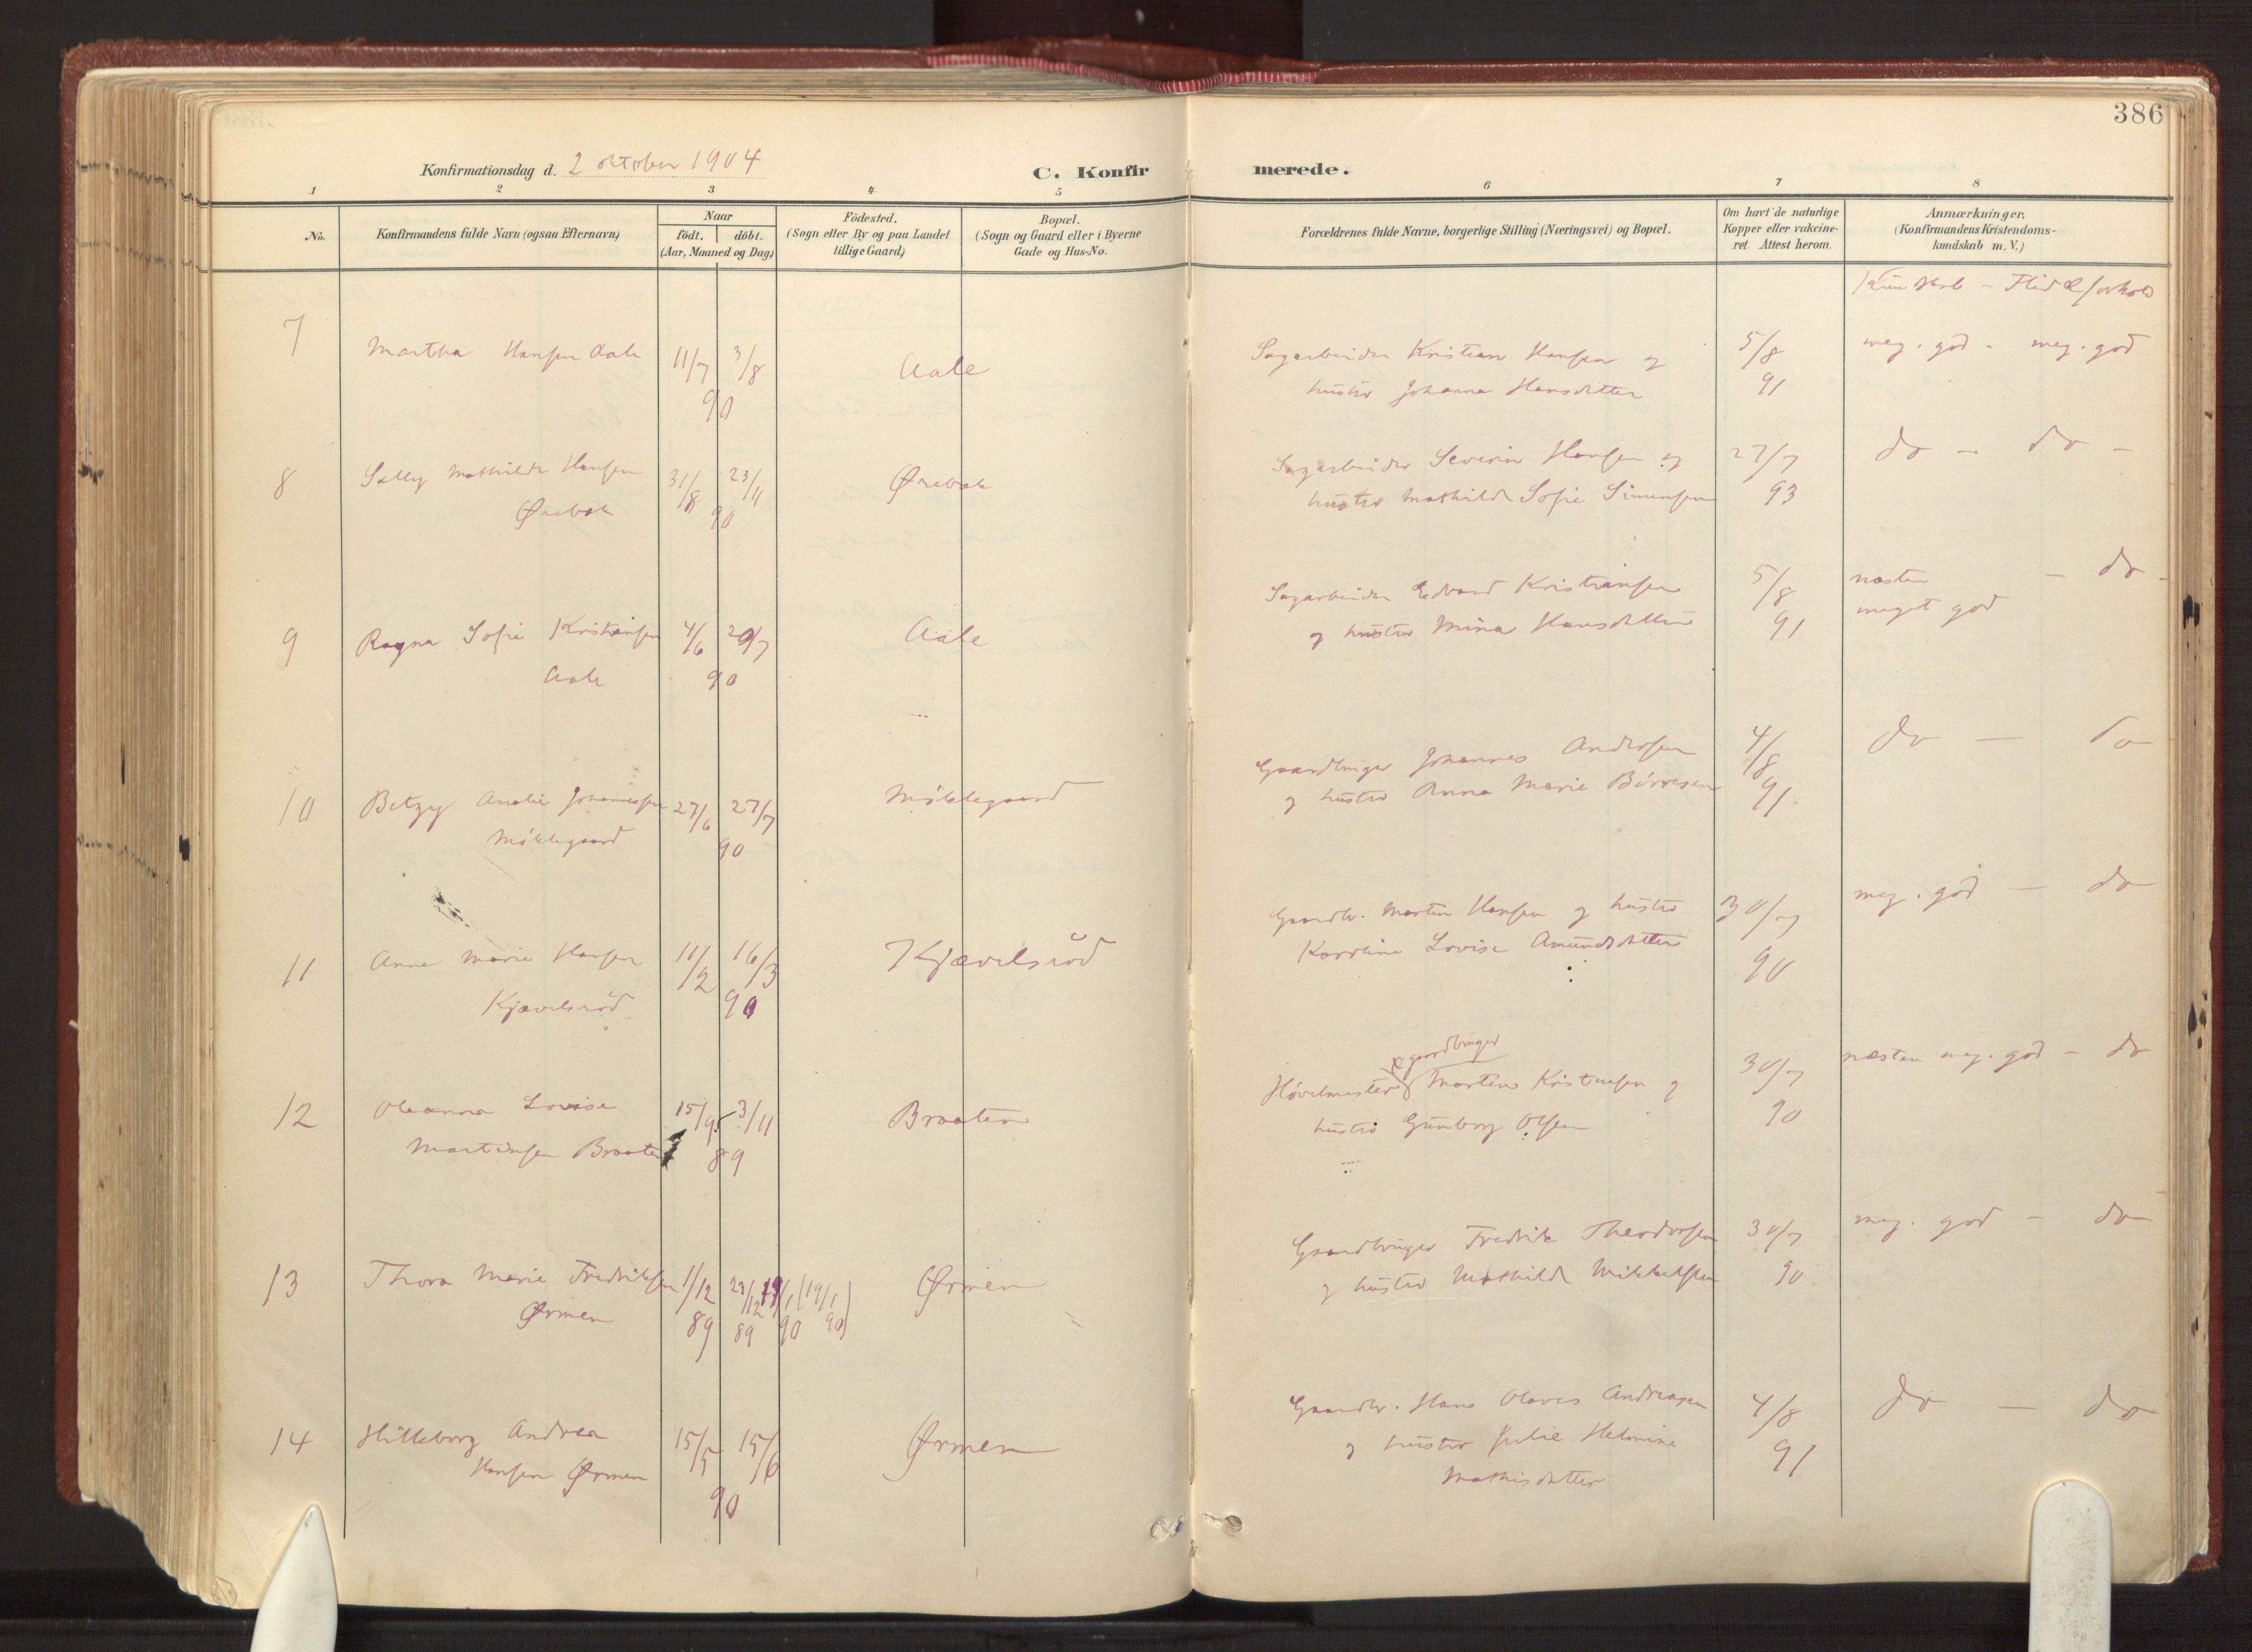 386
Konfirmationsdag d. 2 oktober 1904
C. Konfirmerede.
1 2 3 4 5 6 7 8
No.
Konfirmandens fulde Navn (ogsaa Efternavn)
Naar
födt. döbt.
(Aar, Maaned og Dag)
Födested.
(Sogn eller By og paa Landet
tillige Gaard)
Bopæl.
(Sogn og Gaard eller i Byerne
Gade og Hus-No.
Forældrenes fulde Navne, borgerlige Stilling (Næringsvei) og Bopæl.
Om havt de naturlige
Kopper eller vakcine-
ret. Attest herom.
Anmærkninger.
(Konfirmandens Kristendoms-
kundskab m. V.)
Kundskab - Flid & forhold
7 Martha Hansen Aale 11/7 3/8 Aale
90
Sagarbeider Kristian Hansen og 5/8 meg. god - meg. god
hustru Johanna Hansdatter 91
8 Mathilde Hansen 31/8 23/11 Ørebæk
Ørebæk 90
Sagarbeider Severin Hansen og 27/7 do - do -
hustru Mathilde Sofie Simensen 93
9 Ragna Sofie Kristiansen 4/6 20/7 Aale
Aale 90
Sagarbeider Edvard Kristiansen 5/8 næsten - do -
og hustru Mina Hansdatter 91 meget god
10 Betzy Amalie Johannessen 27/6 27/7 Møklegaard
Møklegaard 90
Gaardbruger Johannes Andersen 4/8 do - do
og hustru Anna Marie Börresen 91.
11 Anna Marie Hansen 11/2 16/3 Kjævelsröd
Kjævelsröd 90
Gaardbr. Martin Hansen og hustru 30/7 meg. god - do
Karoline Lovise Amundsdatter 90
12 Oleanna Lovise 15/9 3/11 Braaten
Martinsen Braaten 89
& gaardbruger
Høvelmester Martin Kristensen og 30/7 næsten meg. god - do
hustru Gunborg Olsen 90
13 Thora Marie Fredriksen 1/12 23/12 19/1 (19/1 Ørmen
Ørmen 89 89 90 90)
Gaardbruger Fredrik Theodorsen 30/7 meg. god - do
og hustru Mathilde Mikkelsen 90
14 Hilleborg Andrea 15/5 15/6 Ørmen
Hansen Ørmen
90
Gaardbr. Hans Olaves Andreasen 4/8 do - do
og hustru Julie Helmine 91
Mathisdatter